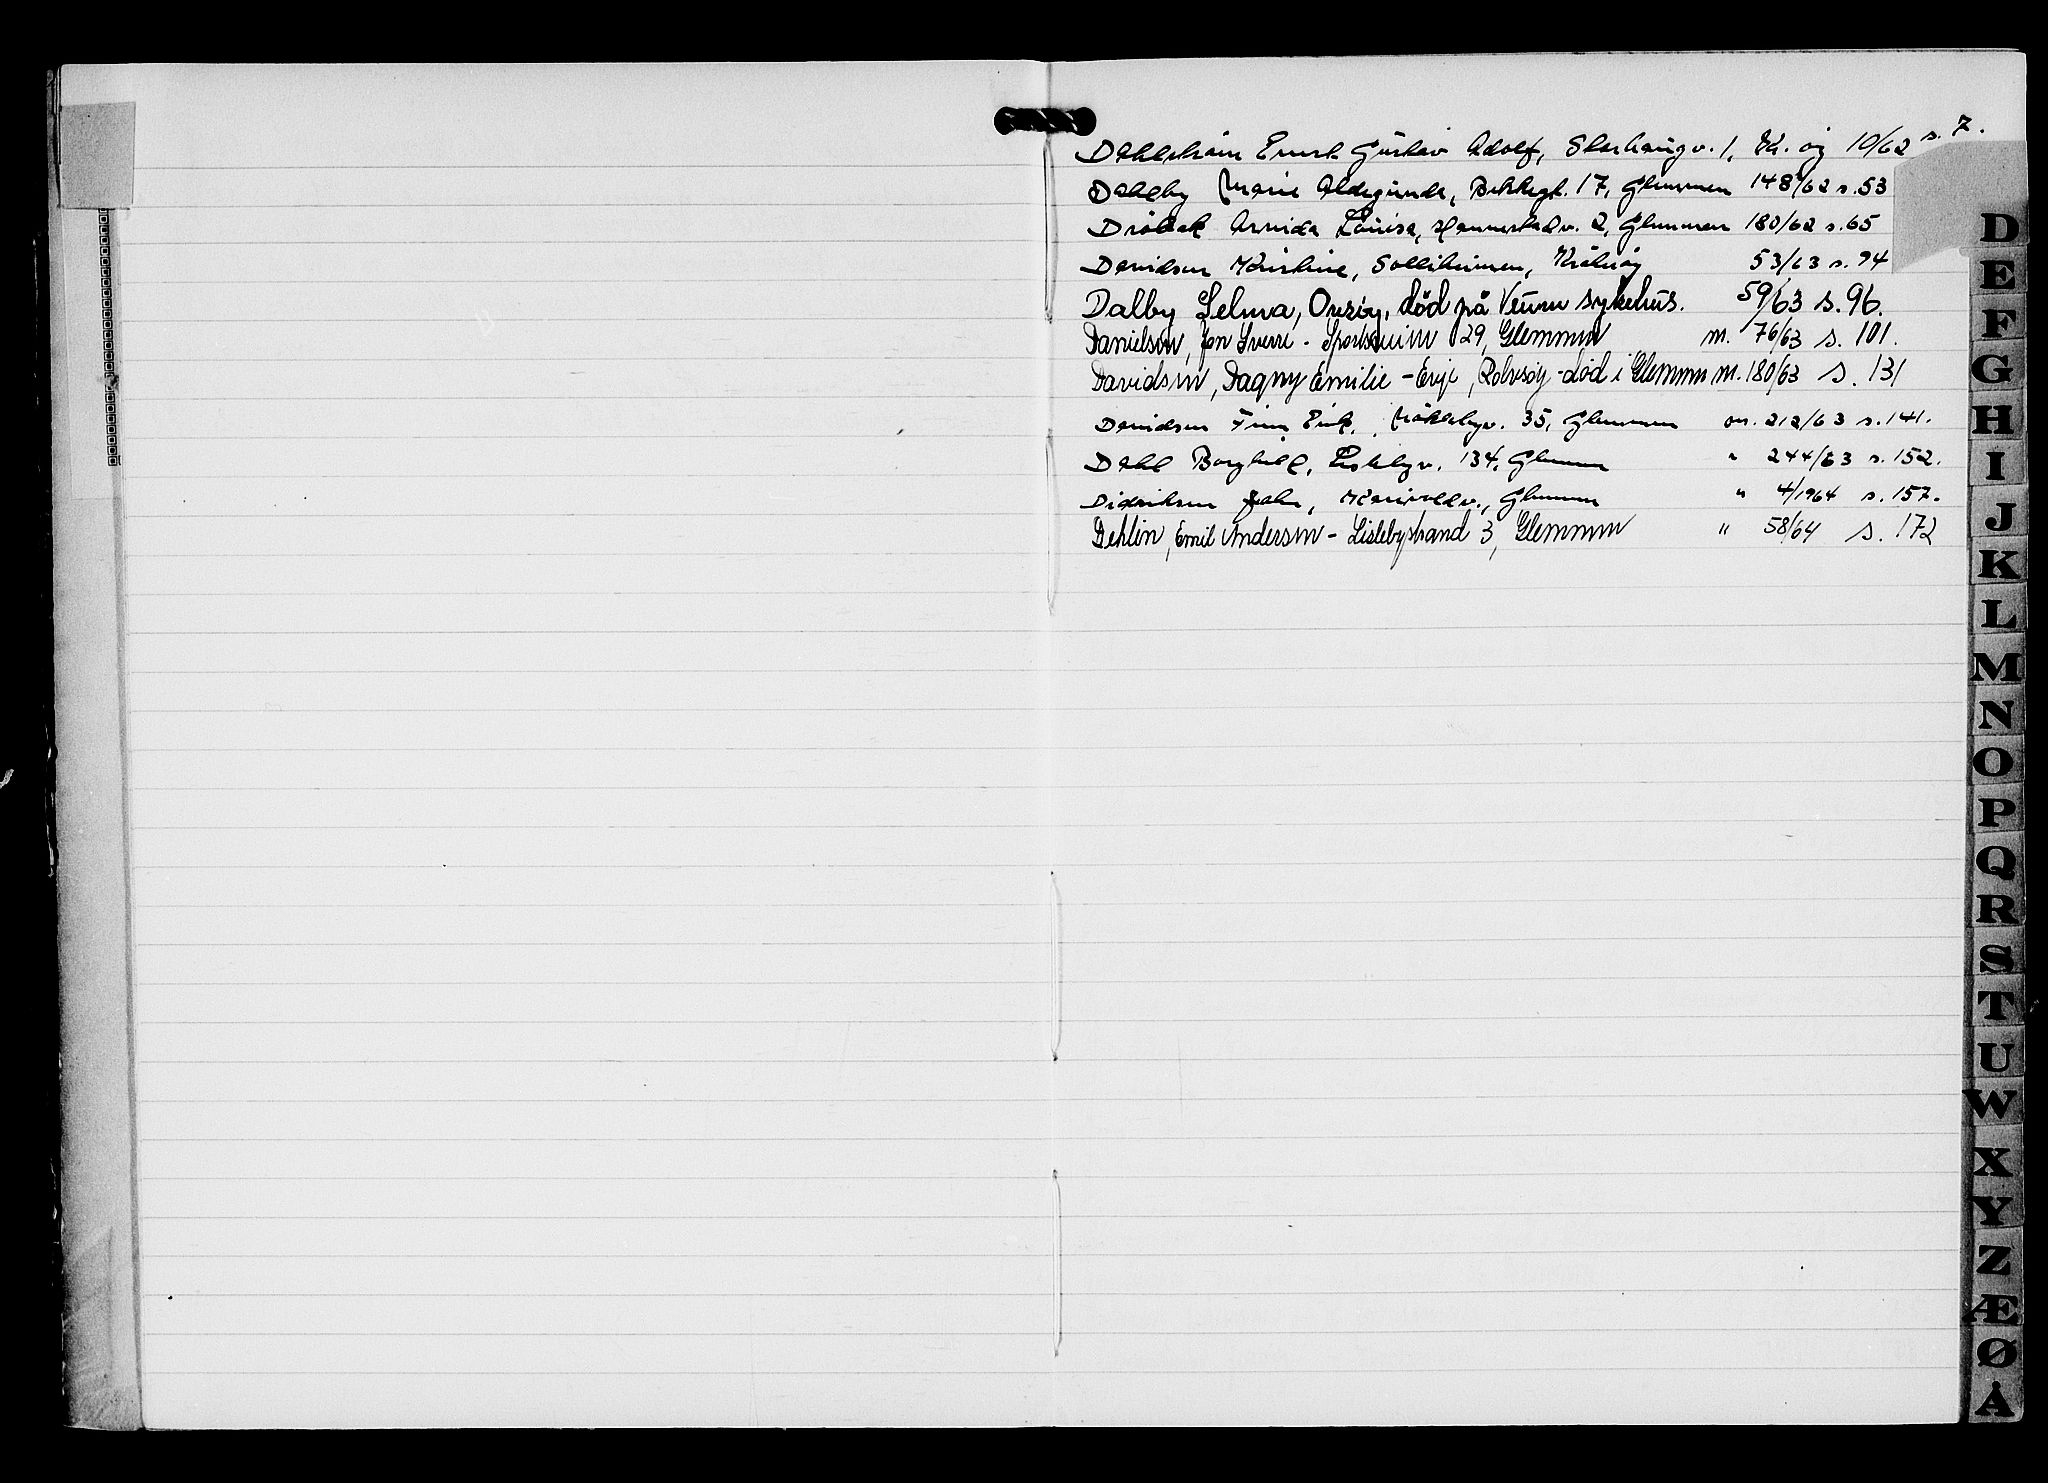 Dahlstrøm Ernst Gustav Adolf, 1, Kr. øy 10/62 s. 7.
Dahlby Marie Aldegunda, Bekkegt. 17, Glemmen 148/62 s. 53
Drøbak Arnida Lovise, Hannestadv. 2, Glemmen 180/62 s. 65
Davidsen Kristine, Solliheimen, Kråkerøy 53/63 s. 94
Dalby Selma, Onsøy, død på Veum sykehus. 59/63 s. 96.
Danielsen, Jan Sverre - 29, Glemmen nr. 76/63 s. 101.
Davidsen, Dagny Emilie - Evje, Rolvsøy - død i Glemmen nr. 180/63 s. 131
Davidsen Finn Erik, 35, Glemmen nr. 212/63 s. 141.
Dahl Borghild, Lislebyv. 134, Glemmen " 244/63 s. 152.
Didriksen John, Glemmen " 4/1964 s. 157.
Dehlin, Emil Andersen - Lislebystrand 3, Glemmen " 58/64 s. 172
D
E
F
G
H
I
J
K
L
M
N
O
P
Q
R
S
T
U
W
X
Y
Z
Æ
Ø
Å